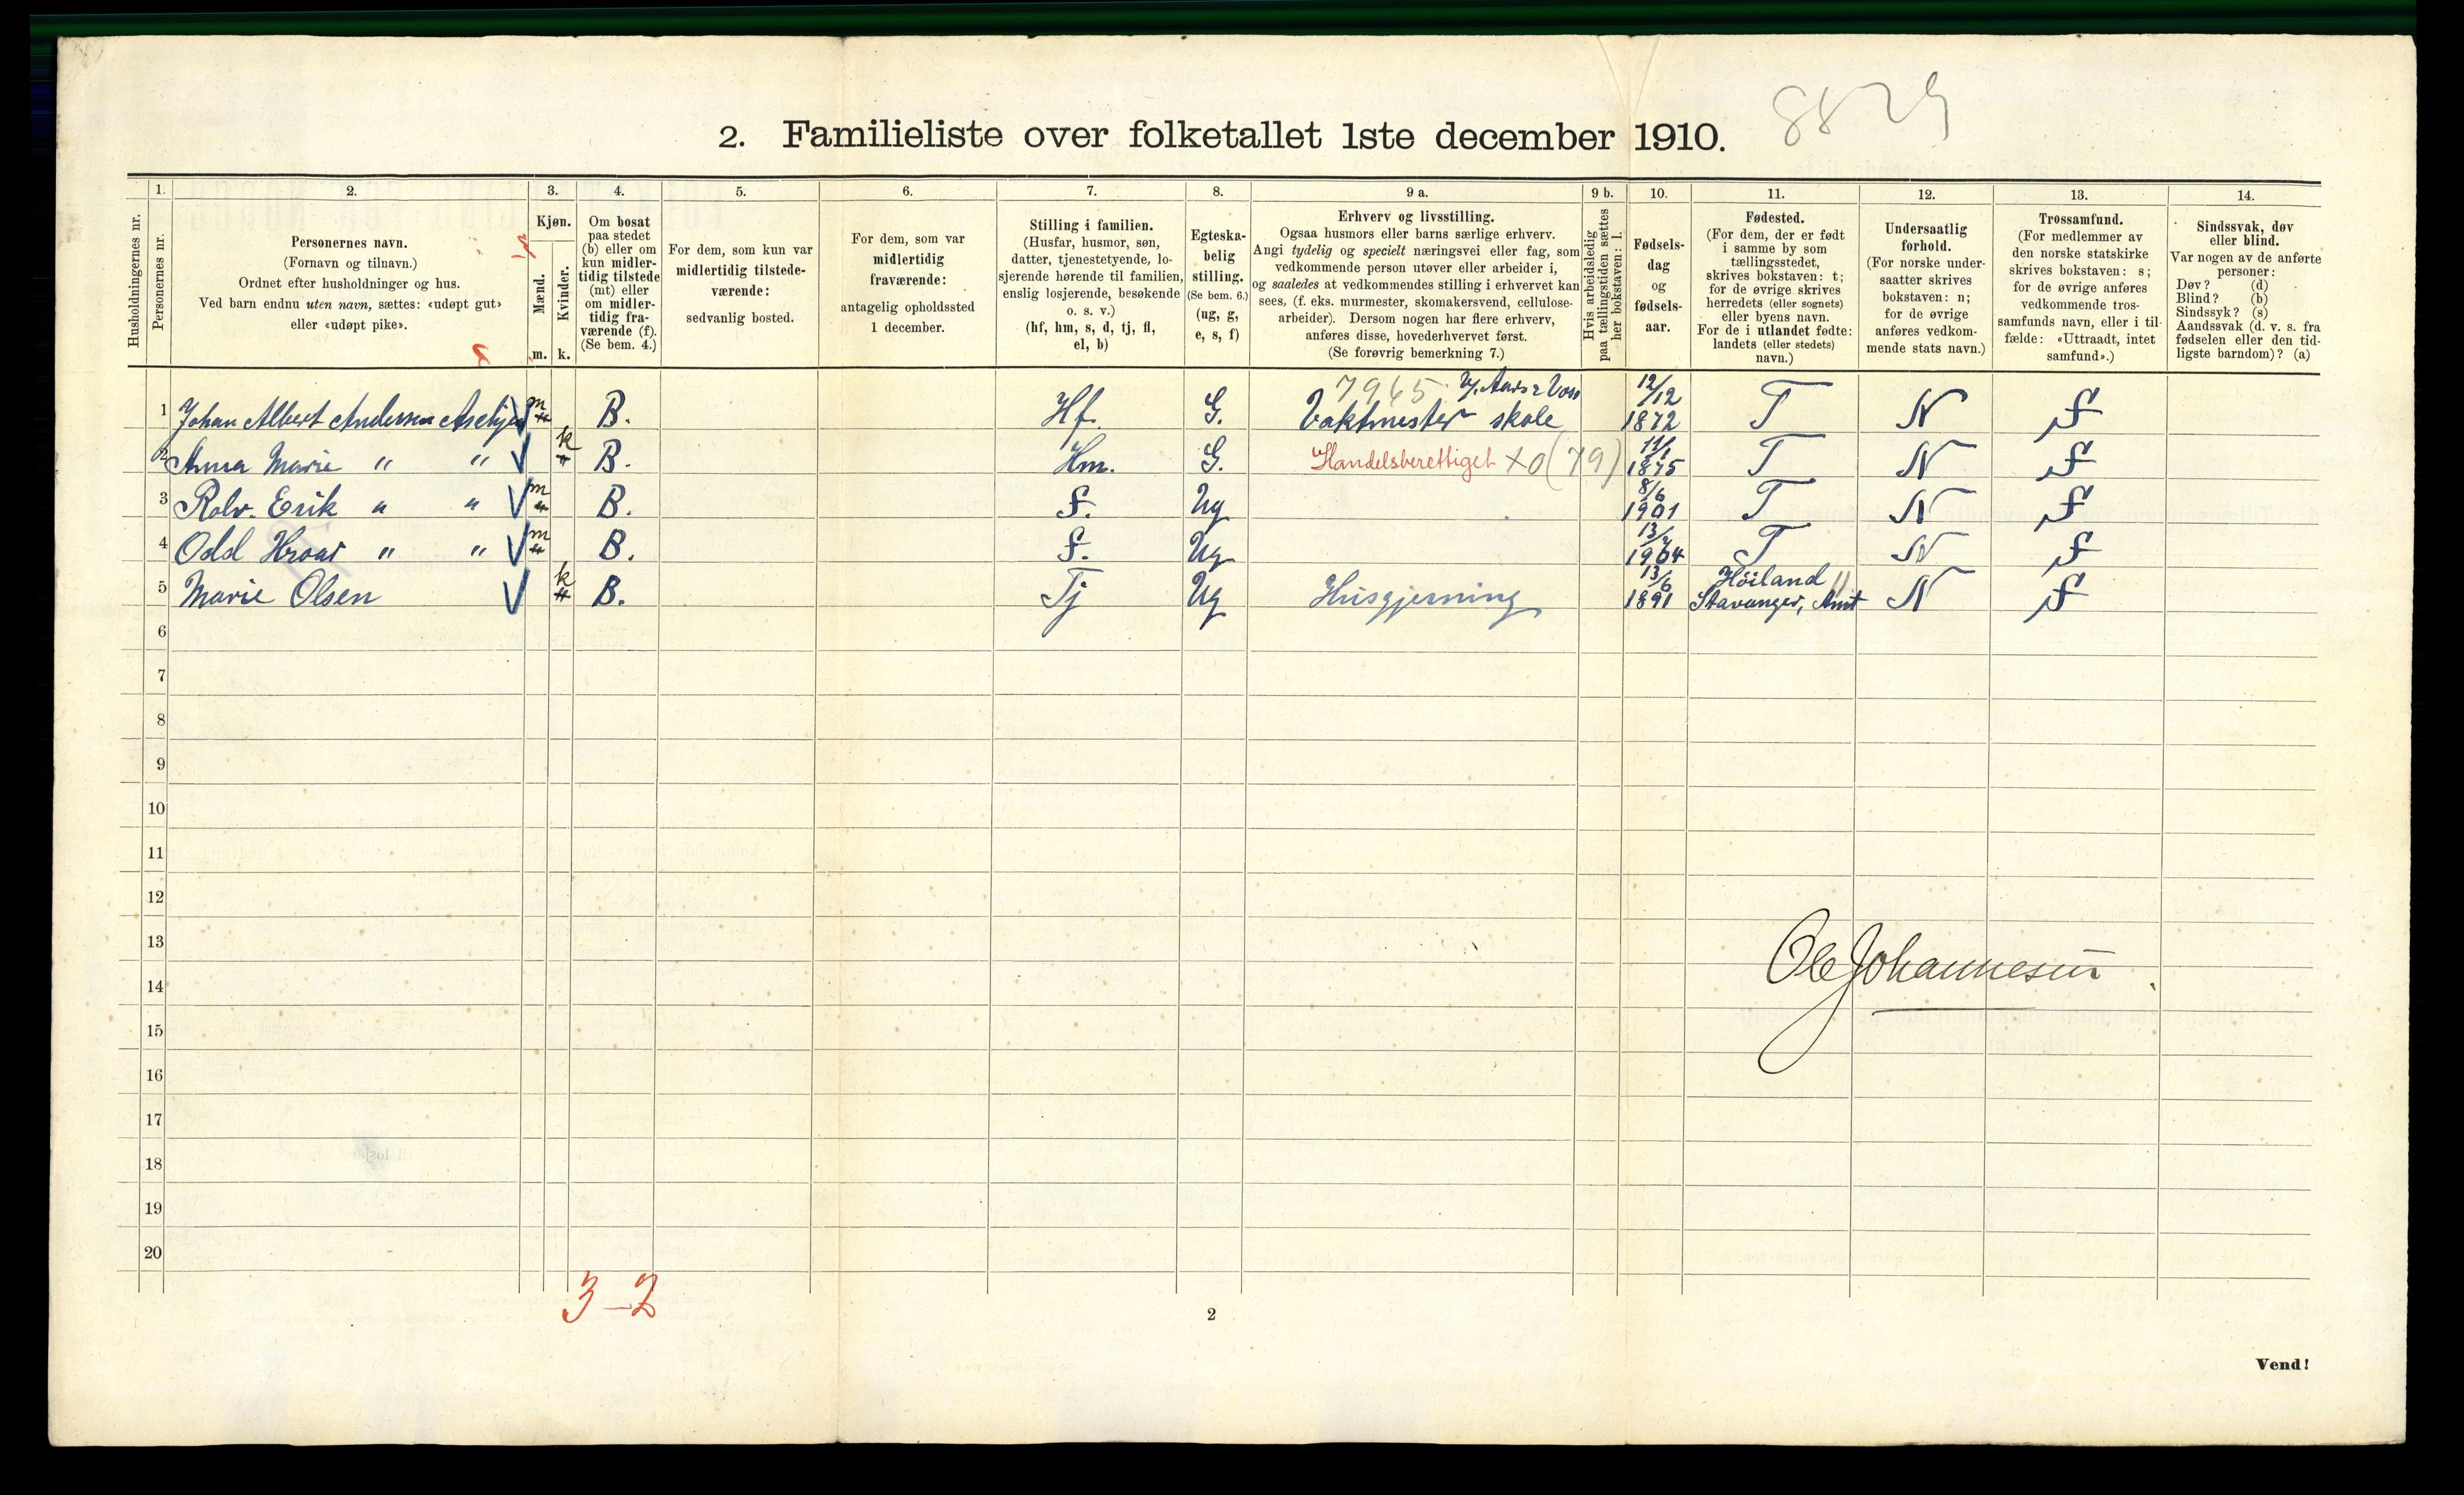 8829
2. Familieliste over folketallet 1ste december 1910.
Husholdningernes nr.
1.
Personernes nr.
2.
Personernes navn.
(Fornavn og tilnavn.)
Ordnet efter husholdninger og hus.
Ved barn endnu uten navn, sættes: «udøpt gut»
eller «udøpt pike».
3.
Kjøn.
Mænd.
Kvinder.
m. k.
4.
Om bosat
paa stedet
(b) eller om
kun midler-
tidig tilstede
(mt) eller
om midler-
tidig fra-
værende (f).
(Se bem. 4.)
5.
For dem, som kun var
midlertidig tilstede-
værende:
sedvanlig bosted.
6.
For dem, som var
midlertidig
fraværende:
antagelig opholdssted
1 december.
7.
Stilling i familien.
(Husfar, husmor, søn,
datter, tjenestetyende, lo-
sjerende hørende til familien,
enslig losjerende, besøkende
o. s. v.)
(hf, hm, s, d, tj, fl,
el, b)
8.
Egteska-
belig
stilling.
(Se bem. 6.)
(ug, g,
e, s, f)
9 a.
Erhverv og livsstilling.
Ogsaa husmors eller barns særlige erhverv.
Angi tydelig og specielt næringsvei eller fag, som
vedkommende person utøver eller arbeider i,
og saaledes at vedkommendes stilling i erhvervet kan
sees, (f. eks. murmester, skomakersvend, cellulose-
arbeider). Dersom nogen har flere erhverv,
anføres disse, hovederhvervet først.
(Se forøvrig bemerkning 7.)
9 b.
Hvis arbeidsledig
paa tællingstiden sættes
her bokstaven: l.
10.
Fødsels-
dag
og
fødsels-
aar.
11.
Fødested.
(For dem, der er født
i samme by som
tællingsstedet,
skrives bokstaven: t;
for de øvrige skrives
herredets (eller sognets)
eller byens navn.
For de i utlandet fødte:
landets (eller stedets)
navn.)
12.
Undersaatlig
forhold.
(For norske under-
saatter skrives
bokstaven: n;
for de øvrige
anføres vedkom-
mende stats navn.)
13.
Trossamfund.
(For medlemmer av
den norske statskirke
skrives bokstaven: s;
for de øvrige anføres
vedkommende tros-
samfunds navn, eller i til-
fælde: «Uttraadt, intet
samfund».)
14.
Sindssvak, døv
eller blind.
Var nogen av de anførte
personer:
Døv? (d)
Blind? (b)
Sindssyk? (s)
Aandssvak (d. v. s. fra
fødselen eller den tid-
ligste barndom)? (a)
7965 v/. Aars & Voss
1 Johan Albert Andersen m B. Hf. G. Vaktmester skole 12/12 1872 T N S
2 Anna Marie " " k B. Hm. G. Handelsberettiget x0(79) 11/1 1875 T N S
3 Rolv. Erik " " m B. S. Ug 8/6 1901 T N S
4 Odd Hroar " " m B. S. Ug 1904 T N S
5 Marie Olsen k B. Tj Ug Husgjerning 13/6 1891 Höiland Stavanger, Amt N S
6
7
8
9
10
11
12
13
14
15
16
17
18
19
20
Ole Johannesen
3-2
2
Vend!